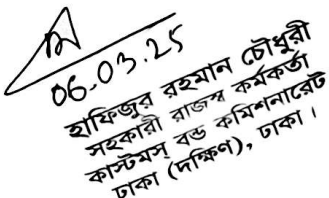 06.03.25
হাফিজুর রহমান চৌধুরী
সহকারী রাজস্ব কর্মকর্তা
কাস্টমস্ বন্ড কমিশনারেট
ঢাকা (দক্ষিণ), ঢাকা।